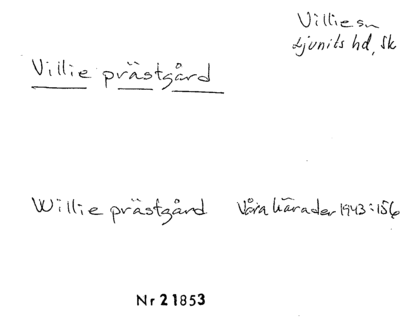 Villie sn
Ljunits hd, Sk
Villie prästgård
Willie prästgård Våra härader 1943:156
Nr 21853